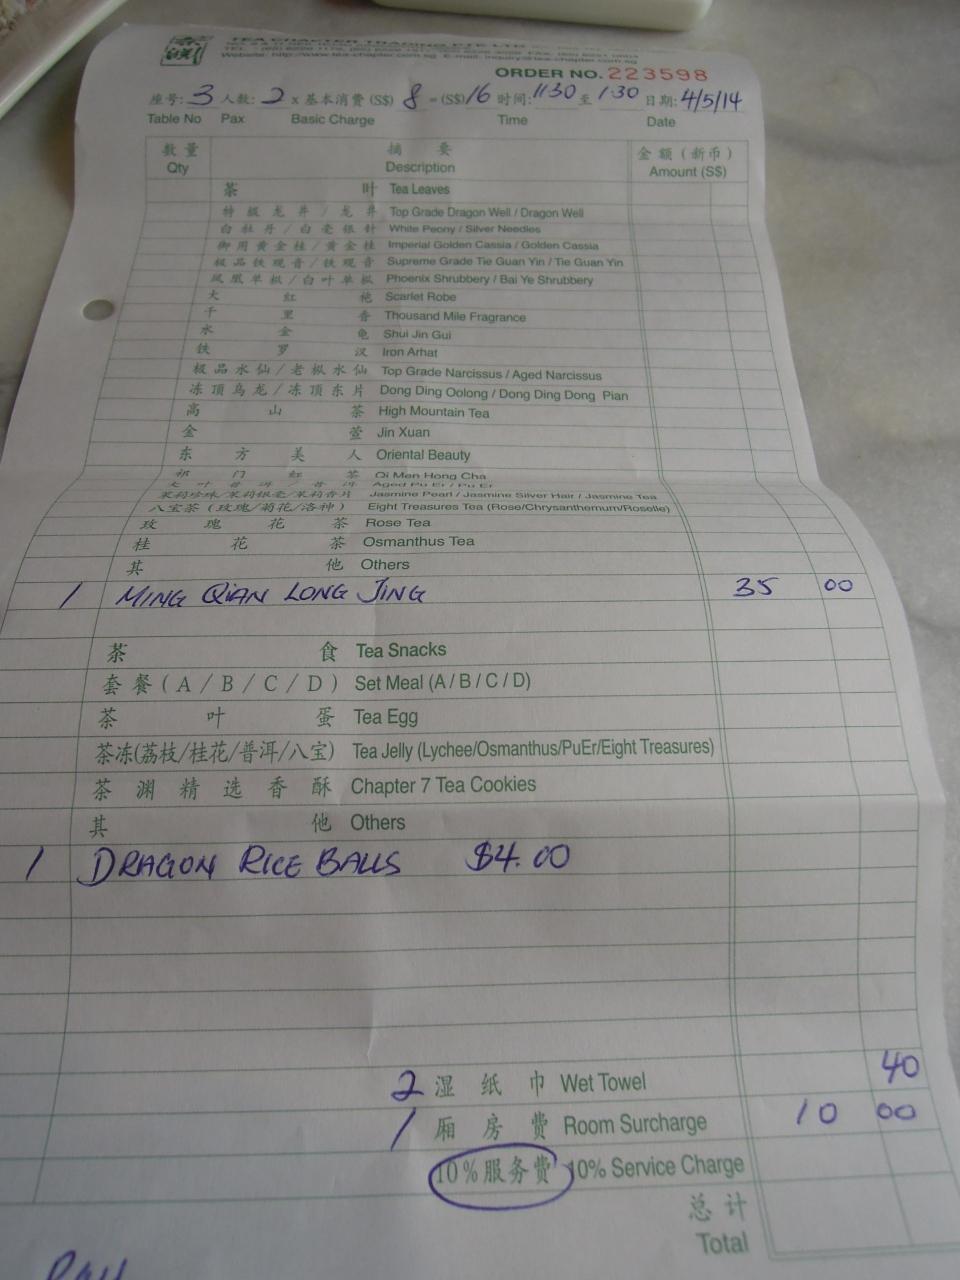 TEA CHAPTER TRADING PTE LTD
ORDER NO. 223598
座号: 3 人数: 2 x 基本消费 (S$) 8 = (S$) 16 时间: 11:30 至 1:30 日期: 4/5/14
Table No Pax Basic Charge Time Date
数量 摘要 金额(新币)
Qty Description Amount (S$)
茶叶 Tea Leaves
特级龙井/龙井 Top Grade Dragon Well / Dragon Well
白牡丹/白毫银针 White Peony / Silver Needles
御用黄金桂/黄金桂 Imperial Golden Cassia / Golden Cassia
极品铁观音/铁观音 Supreme Grade Tie Guan Yin / Tie Guan Yin
凤凰单枞/白叶单枞 Phoenix Shrubbery / Bai Ye Shrubbery
大红袍 Scarlet Robe
千里香 Thousand Mile Fragrance
水金龟 Shui Jin Gui
铁罗汉 Iron Arhat
极品水仙/老枞水仙 Top Grade Narcissus / Aged Narcissus
冻顶乌龙/冻顶东片 Dong Ding Oolong / Dong Ding Dong Pian
高山茶 High Mountain Tea
金萱 Jin Xuan
东方美人 Oriental Beauty
祁门红茶 Qi Men Hong Cha
Aged Pu Er / Pu Er
茉莉珍珠/茉莉银毫/茉莉香片 Jasmine Pearl / Jasmine Silver Hair / Jasmine Tea
八宝茶(玫瑰/菊花/洛神) Eight Treasures Tea (Rose/Chrysanthemum/Roselle)
玫瑰花茶 Rose Tea
桂花茶 Osmanthus Tea
其他 Others
1 MING QIAN LONG JING 35 00
茶食 Tea Snacks
套餐(A/B/C/D) Set Meal (A/B/C/D)
茶叶蛋 Tea Egg
茶冻(荔枝/桂花/普洱/八宝) Tea Jelly (Lychee/Osmanthus/PuEr/Eight Treasures)
茶渊精选香酥 Chapter 7 Tea Cookies
其他 Others
1 DRAGON RICE BALLS $4.00
2 湿纸巾 Wet Towel 40
1 厢房费 Room Surcharge 10 00
10%服务费 10% Service Charge
总计
Total